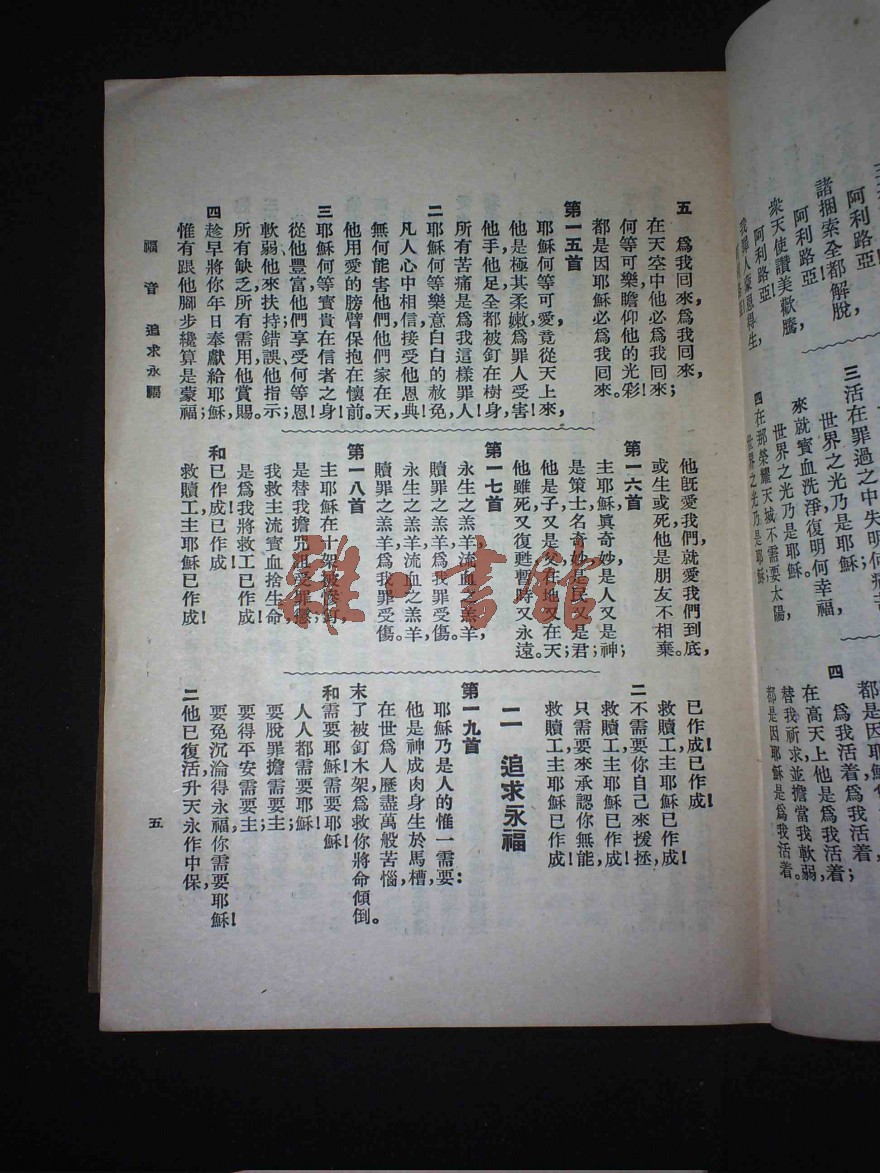 諸捆索全都解脫，
阿利路亞！
衆天使讚美歡騰，
阿利路亞！
三活在罪過之中失明何
世界之光乃是耶穌；
來就寶血洗淨復明何幸福，
世界之光乃是耶穌。
四在那榮耀天城不需要太陽，
世界之光乃是耶穌
四　爲我活着爲我活着，
在高天上他是爲我活着；
替我祈求並擔當我軟弱，
都是因耶穌是爲我活着。
五　爲我回來，爲我回來，
在天空中他必爲我回來；
何等可樂，瞻仰他的光彩！
都是因耶穌必爲我回來。
第一五首
耶穌何等可愛，竟從天上來，
他是極其柔嫩，爲罪人受害！
他手，他足，全都被釘在樹身，
所有苦痛是爲我這樣罪人！
二耶穌何等樂意白白的赦免，
凡人心中相信，接受他恩典！
無何能害他們，他們家在天，
他用愛的膀臂保抱在懷前。
三耶穌何等寶貴在信者之身！
從他豐富，他們享受何等恩！
軟弱他來扶持，錯誤他指示；
所有缺乏，所有需用，他賞賜。
四趁早將你年日奉獻給耶穌；
惟有跟他腳步纔算是蒙福；
他旣愛我們，就愛我們到底，
或生或死他是朋友不相棄。
第一六首
主耶穌眞奇妙，是人又是神；
是策士名奇妙，是民又是君；
他是子又是父，在地又在天；
他雖死又復甦，暫時又永遠。
第一七首
永生之羔羊，流血之羔羊，
贖罪之羔羊，爲我罪受傷。
永生之羔羊，流血之羔羊，
贖罪之羔羊，爲我罪受傷。
第一八首
主耶穌在十架被慘釘，
是替我擔咒詛受罪懲；
我救主流寶血捨生命，
是爲我將救工已作成！
和已作成！已作成！
救贖工主耶穌已作成！
已作成！已作成！
救贖工，主耶穌已作成！
二不需要你自己來援拯，
救贖工，主耶穌已作成！
只需要來承認你無能，
救贖工主耶穌已作成！
二　追求永福
第一九首
耶穌乃是人的惟一需要：
他是神成肉身生於馬槽，
在世爲人歷盡萬般苦惱，
末了被釘木架爲救你將命傾倒。
和需要耶穌需要耶穌！
人人都需要耶穌；
要脫罪擔需要主；
要得平安需要主；
要免沉淪得永福你需要耶穌！
二他已復活，升天永作中保，
福音　追求永福
五
雜·書館